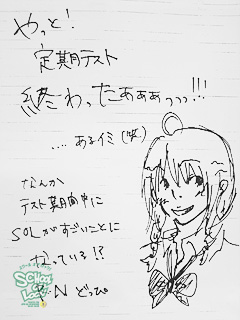 やっと!
定期テスト
終わったあぁぁっっっ!!!
.... あるイミ(笑)
なんか
テスト期間中に
SOLがすごいことに
なっている!?
N どっぴ